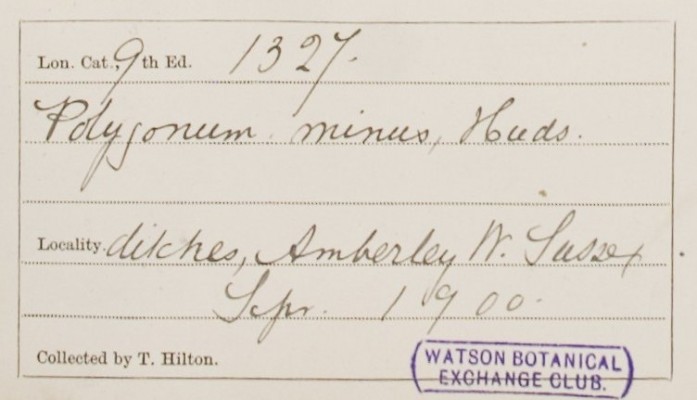 Lon. Cat., 9th Ed. 1327.
Polygonum minus, Huds.
Locality. ditches, Amberley W. Sussex
Sepr. 1900.
Collected by T. Hilton.
WATSON BOTANICAL
EXCHANGE CLUB.